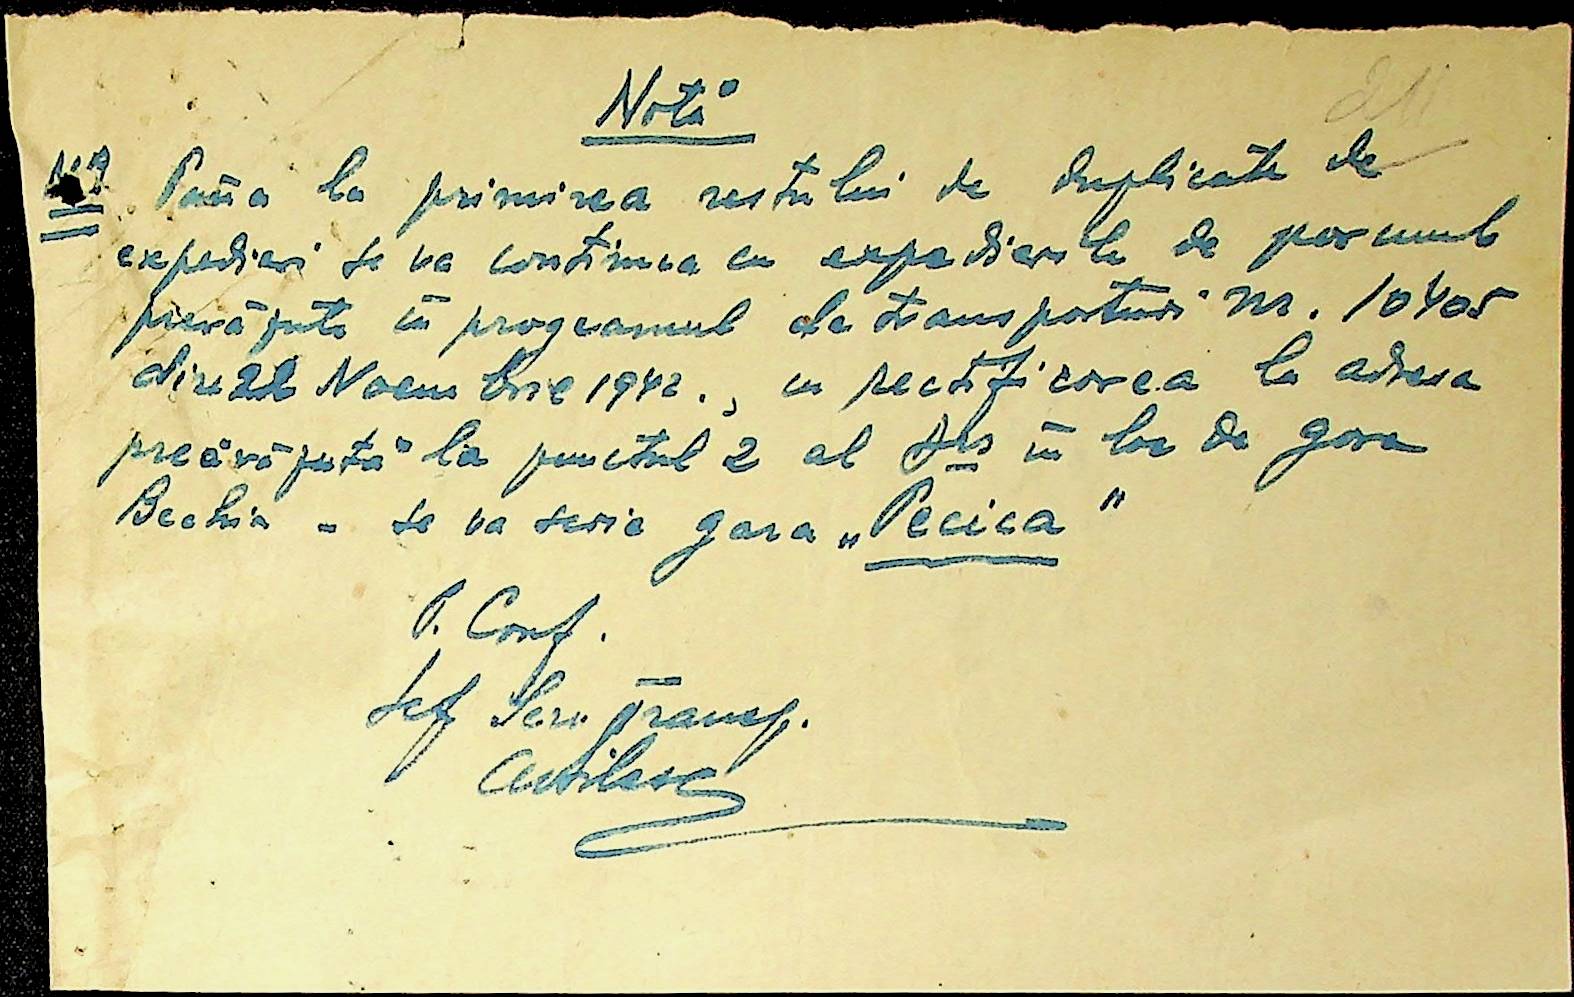 Notă
Până la primirea restului de duplicate de
expedieri se va continua cu expedierile de porumb
prevăzute în programul de transporturi Nr. 10405
din 22 Noembrie 1942., cu rectificarea la adresa
prevăzută la punctul 2 al în loc de gara
Bechia - se va scrie gara „Pecica"
p. Conf.
Șef Serv. Transp.